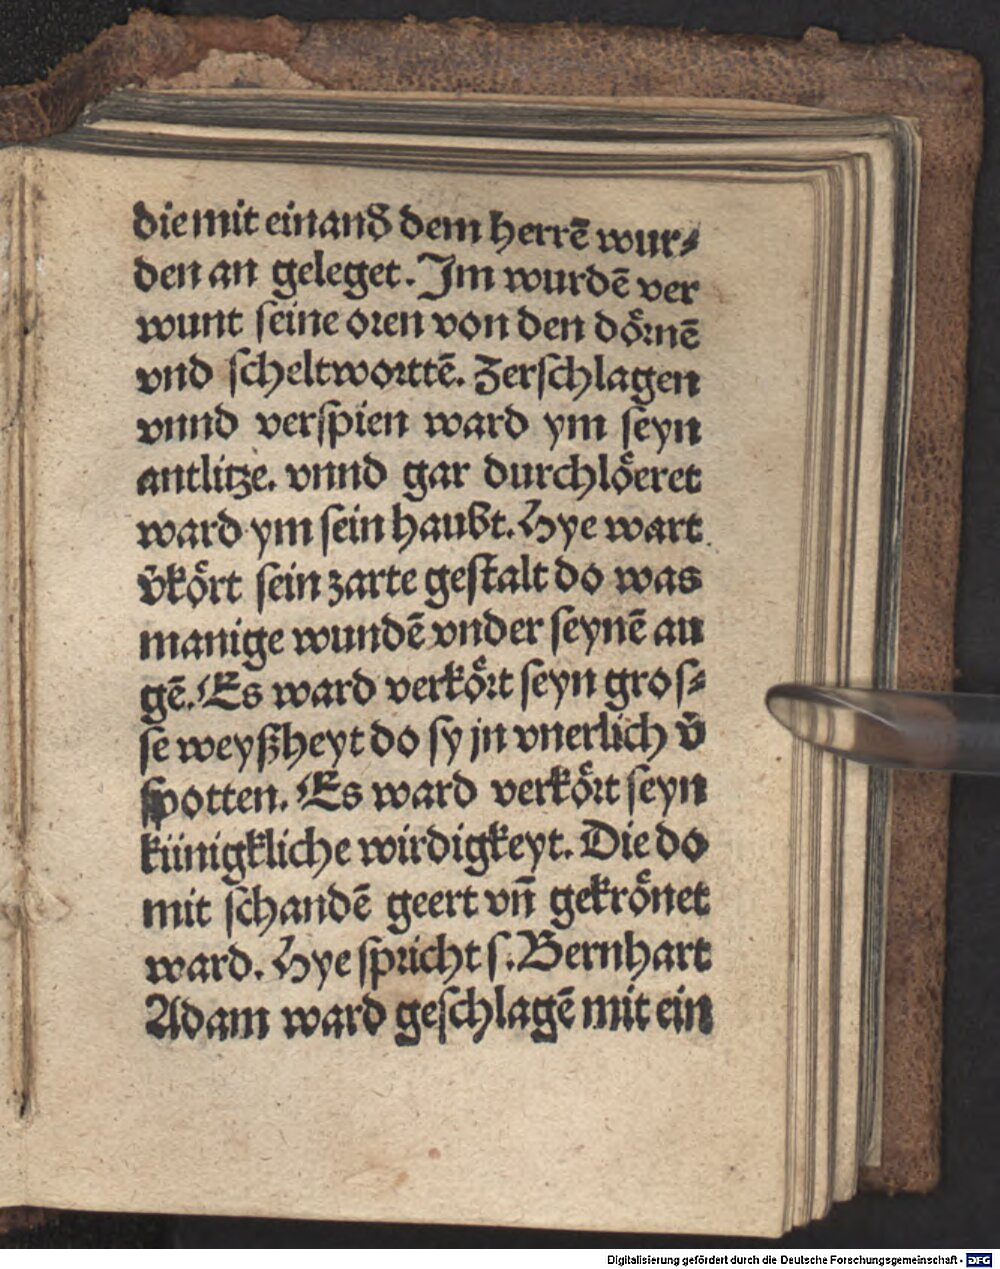 die mit einanð dem herrē wur⸗
den an geleget. Jm wurdē ver
wunt ſeine oꝛen von den doͤꝛnē
vnd ſcheltwoꝛttē. Zerſchlagen
vnnd verſpien ward ym ſeyn
antlitze. vnnd gar durchloͤeret
ward ym ſein haubt. Hye wart
v̄koͤꝛt ſein zarte geſtalt do was
manige wundē vnder ſeynē au
gē. Es ward verkoͤꝛt ſeyn groſ⸗
ſe weyßheyt do ſy jn vnerlich v̄
ſpotten. Es ward verkoͤꝛt ſeyn
küniɡkliche wirdigkeyt. Die do
mit ſchandē geert vn̄ gekroͤnet
ward. Hye ſpꝛicht ſ. Bernhart
Adam ward geſchlagē mit ein
Digitalisierung gefördert durch die Deutsche Forschungsgemeinschaft - DFG